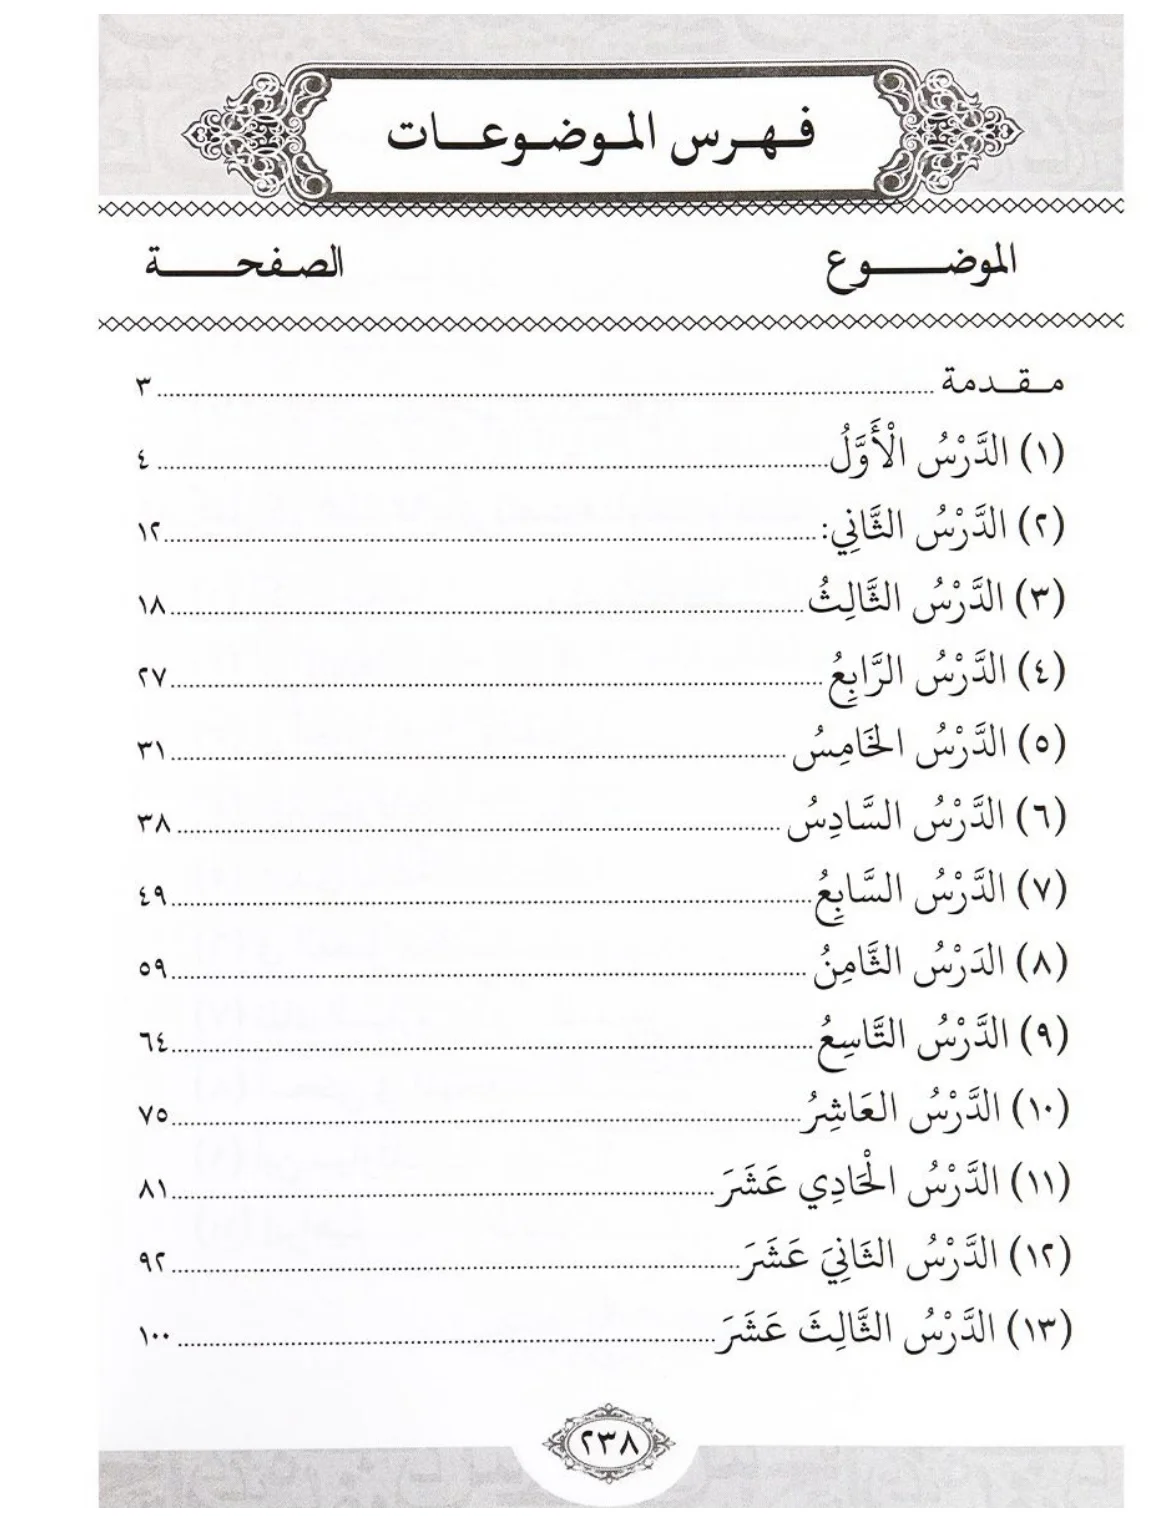 فهرس الموضوعات
الموضوع الصفحة
مقدمة ٣
(١) الدَّرْسُ الْأَوَّلُ ٤
(٢) الدَّرْسُ الثَّانِي: ١٢
(٣) الدَّرْسُ الثَّالِثُ ١٨
(٤) الدَّرْسُ الرَّابِعُ ٢٧
(٥) الدَّرْسُ الخَامِسُ ٣١
(٦) الدَّرْسُ السَّادِسُ ٣٨
(٧) الدَّرْسُ السَّابِعُ ٤٩
(٨) الدَرْسُ الثَّامِنُ ٥٩
(٩) الدَّرْسُ التَّاسِعُ ٦٤
(١٠) الدَّرْسُ العَاشِرُ ٧٥
(١١) الدَّرْسُ الْحَادِي عَشَرَ ٨١
(١٢) الدَّرْسُ الثَانِيَ عَشَرَ ٩٢
(١٣) الدَّرْسُ الثَّالِثَ عَشَرَ ١٠٠
٢٣٨